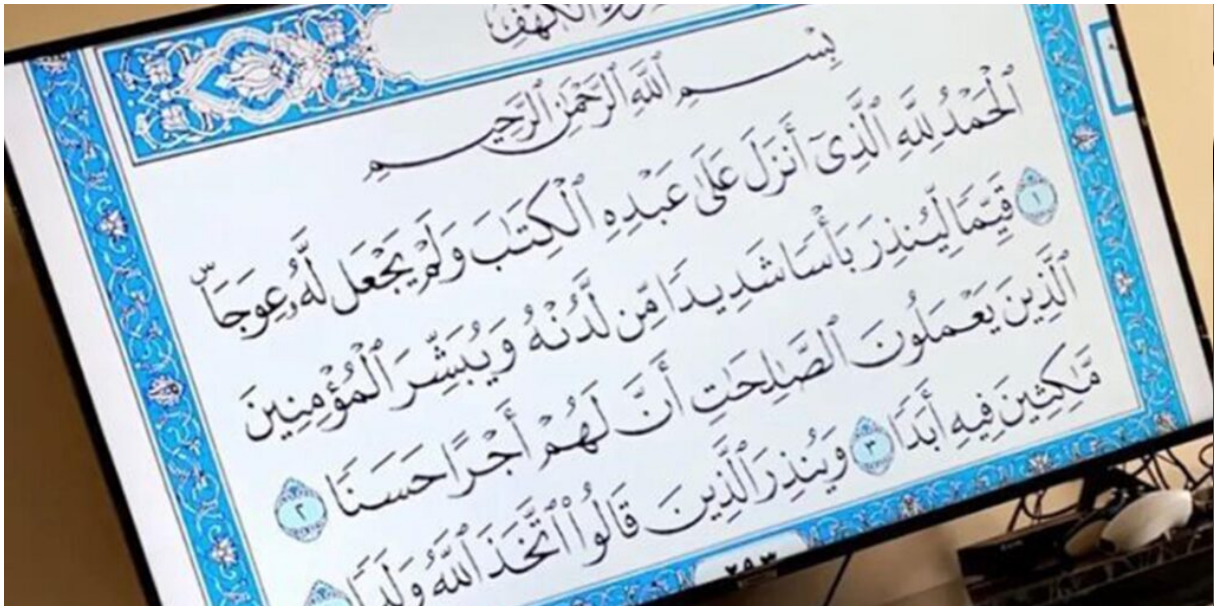 سُورَةُ الكَهْفِ
بِسْمِ ٱللَّهِ ٱلرَّحْمَٰنِ ٱلرَّحِيمِ
ٱلْحَمْدُ لِلَّهِ ٱلَّذِىٓ أَنزَلَ عَلَىٰ عَبْدِهِ ٱلْكِتَٰبَ وَلَمْ يَجْعَل لَّهُۥ عِوَجَاۜ
١ قَيِّمًا لِّيُنذِرَ بَأْسًا شَدِيدًا مِّن لَّدُنْهُ وَيُبَشِّرَ ٱلْمُؤْمِنِينَ
ٱلَّذِينَ يَعْمَلُونَ ٱلصَّٰلِحَٰتِ أَنَّ لَهُمْ أَجْرًا حَسَنًا ٢
مَّٰكِثِينَ فِيهِ أَبَدًا ٣ وَيُنذِرَ ٱلَّذِينَ قَالُوا۟ ٱتَّخَذَ ٱللَّهُ وَلَدًا
٢٩٣